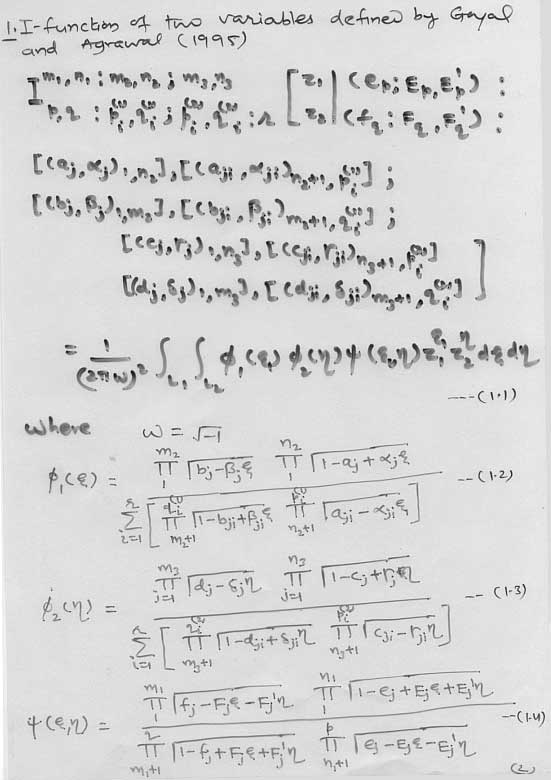 1. I-function of two variables defined by Goyal
and Agrawal (1995)
I^{m₁, n₁ ; m₂, n₂ ; m₃, n₃}_{p, q : p_i^{(1)}, q_i^{(1)} ; p_i^{(2)}, q_i^{(2)} ; r} [ z₁ | (e_p ; E_p, E'_p) :
z₂ | (f_q ; F_q, F'_q) :
[(a_j, α_j)₁,n₂], [(a_ji, α_ji)_{n₂+1, p_i^{(1)}}] ;
[(b_j, β_j)₁,m₂], [(b_ji, β_ji)_{m₂+1, q_i^{(1)}}] ;
[(c_j, r_j)₁,n₃], [(c_ji, r_ji)_{n₃+1, p_i^{(2)}}]
[(d_j, δ_j)₁,m₃], [(d_ji, δ_ji)_{m₃+1, q_i^{(2)}}] ]
= 1/(2πω)² ∫_{L₁} ∫_{L₂} φ₁(ξ) φ₂(η) ψ(ξ,η) z₁^ξ z₂^η dξ dη
---(1.1)
where ω = √-1
φ₁(ξ) = ∏_{1}^{m₂} Γ(b_j - β_j ξ) ∏_{1}^{n₂} Γ(1 - a_j + α_j ξ) / Σ_{i=1}^{r} [ ∏_{m₂+1}^{q_i^{(1)}} Γ(1 - b_ji + β_ji ξ) ∏_{n₂+1}^{p_i^{(1)}} Γ(a_ji - α_ji ξ) ] --(1.2)
φ₂(η) = ∏_{j=1}^{m₃} Γ(d_j - δ_j η) ∏_{j=1}^{n₃} Γ(1 - c_j + r_j η) / Σ_{i=1}^{r} [ ∏_{m₃+1}^{q_i^{(2)}} Γ(1 - d_ji + δ_ji η) ∏_{n₃+1}^{p_i^{(2)}} Γ(c_ji - r_ji η) ] -- (1.3)
ψ(ξ,η) = ∏_{1}^{m₁} Γ(f_j - F_j ξ - F_j' η) ∏_{1}^{n₁} Γ(1 - e_j + E_j ξ + E_j' η) / ∏_{m₁+1}^{q} Γ(1 - f_j + F_j ξ + F_j' η) ∏_{n₁+1}^{p} Γ(e_j - E_j ξ - E_j' η) --(1.4)
(2)